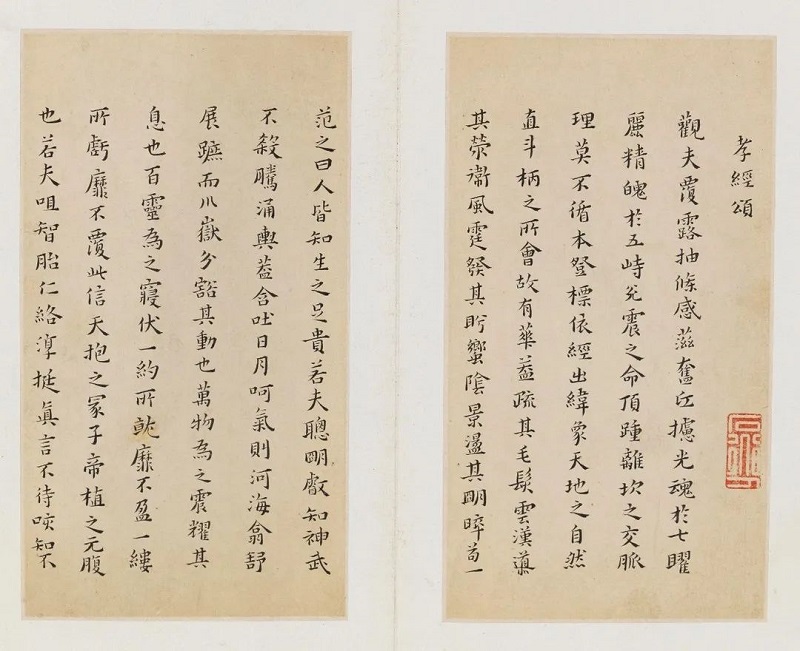 孝經頌
觀夫覆露抽條感滋奮広攄光魂於七曜
麗精魄於五峙兊震之命頂踵離坎之交脈
理莫不循本登標依經出緯象天地之自然
直斗柄之所會故有華葢疏其毛髮雲漢導
其荣衞風霆發其盻蠁陰景盪其明晬苟一
范之曰人皆知生之足貴若夫聰明叡知神武
不殺騰涌輿葢含吐日月呵氣則河海翕舒
展蹠而川嶽分豁其動也萬物為之震耀其
息也百靈為之寢伏一約所就靡不盈一縷
所虧靡不覆此信天抱之冢子帝植之元腹
也若夫咀智胎仁絡淳挻眞言不待咳知不